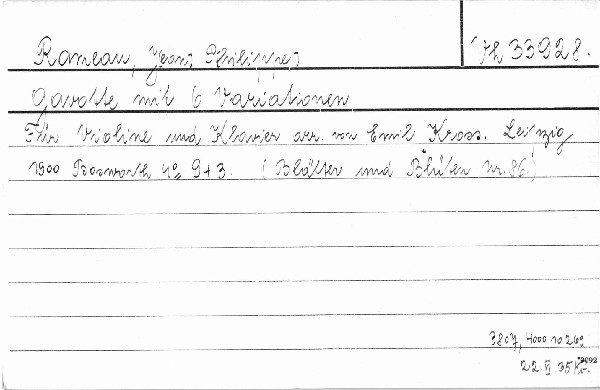 Rameau, Jean, Philippe, Th 33928.
Gavotte mit 6 Variationen
Für Violine und Klavier arr. von Emil Kross. Leipzig
1900 Bosworth 4° 9+3. (Blätter und Blüten Nr. 86.)
3807, 4000 10 269
22 VI 35 Kr.